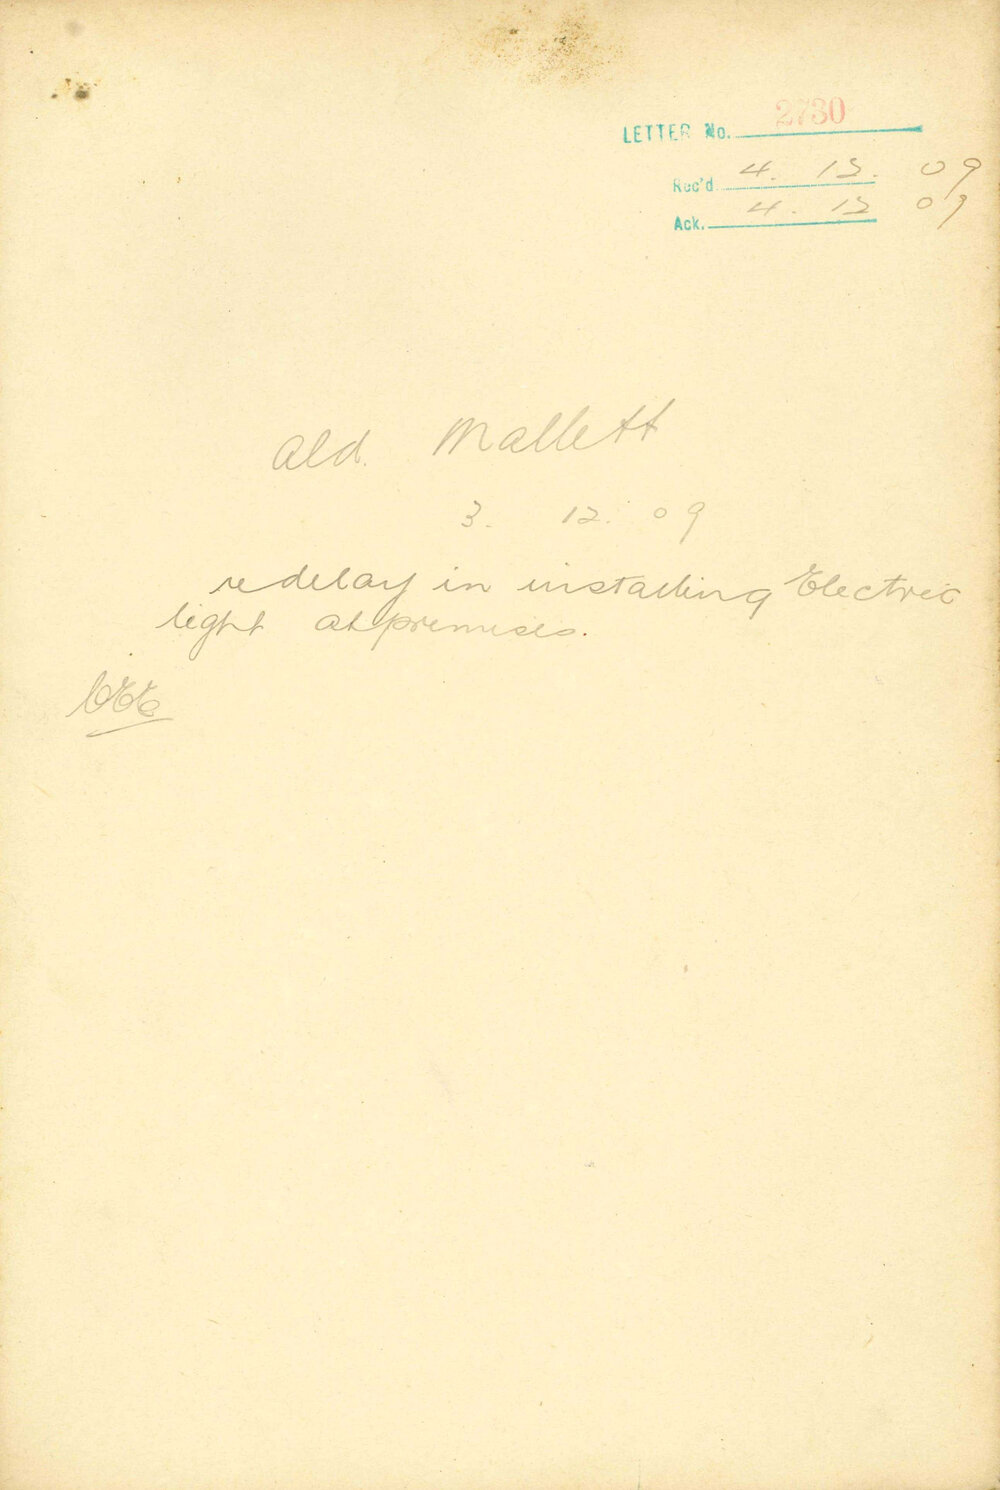 LETTER No. 2730
Rec'd 4. 12. 09
Ack. 4. 12 09
Ald. Mallett
3. 12. 09
re delay in installing Electric
light at premises.